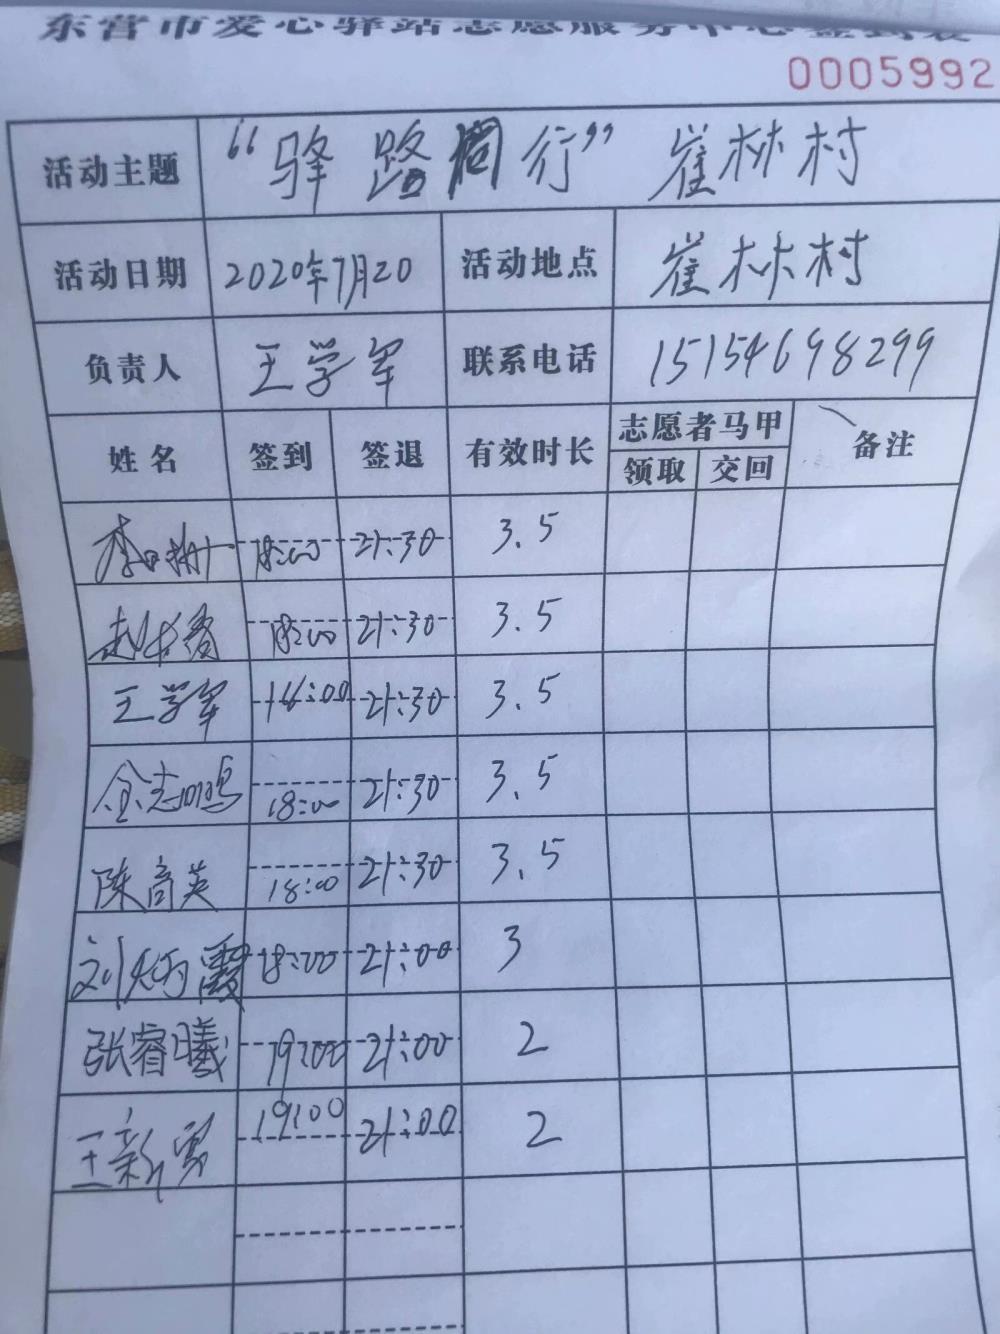 东营市爱心驿站志愿服务中心签到表
0005992
活动主题 “驿路同行” 崔林村
活动日期 2020年7月20 活动地点 崔林村
负责人 王学军 联系电话 15154698299
姓名 签到 签退 有效时长 志愿者马甲 备注
领取 交回
18:00 21:30 3.5
18:00 21:30 3.5
王学军 16:00 21:30 3.5
仝志鸣 18:00 21:30 3.5
陈高英 18:00 21:30 3.5
刘炳霞 18:00 21:00 3
张睿曦 19:00 21:00 2
王新勇 19:00 21:00 2